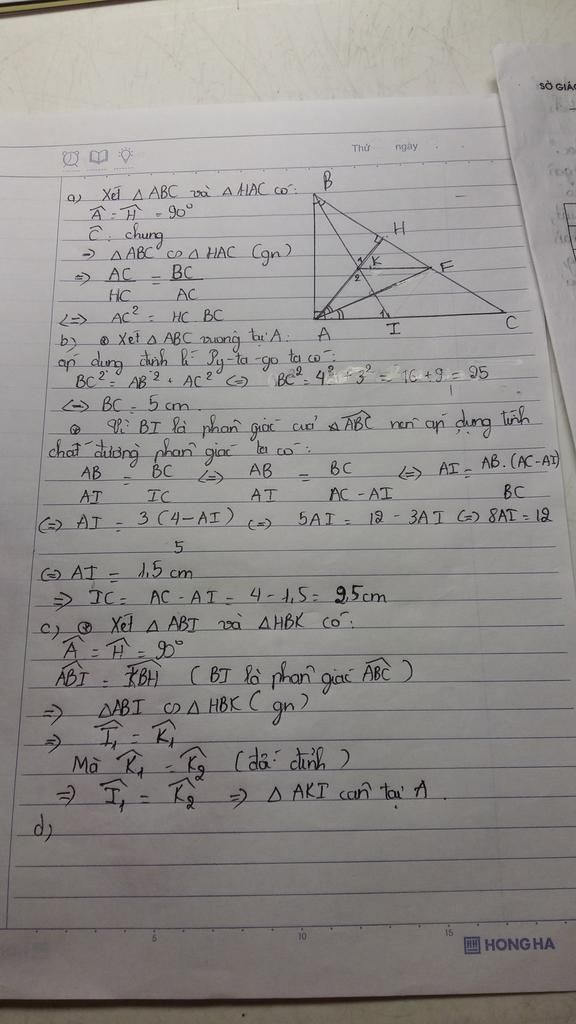 SỞ GIÁO
Thứ ngày
a) Xét △ABC và △HAC có:
Â = Ĥ = 90°
Ĉ: chung
=> △ABC ∽ △HAC (gn)
=> AC/HC = BC/AC
<=> AC² = HC.BC
b) Xét △ABC vuông tại A:
áp dụng định lí Py-ta-go ta có:
BC² = AB² + AC² <=> BC² = 4² + 3² = 16 + 9 = 25
<=> BC = 5 cm.
Vì BI là phân giác của △ABC nên áp dụng tính
chất đường phân giác ta có:
AB/AI = BC/IC <=> AB/AI = BC/AC - AI <=> AI = AB.(AC-AI)/BC
<=> AI = 3(4-AI)/5 <=> 5AI = 12 - 3AI <=> 8AI = 12
<=> AI = 1,5 cm
=> IC = AC - AI = 4 - 1,5 = 2,5cm
c) Xét △ABI và △HBK có:
Â = Ĥ = 90°
ABI = KBH (BI là phân giác ABC)
=> △ABI ∽ △HBK (gn)
=> I₁ = K₁
Mà K₁ = K₂ (đối đỉnh)
=> I₁ = K₂ => △AKI cân tại A.
d)
B
H
1 K
2
E
A
1
I
C
5 10 15
HH HONG HA